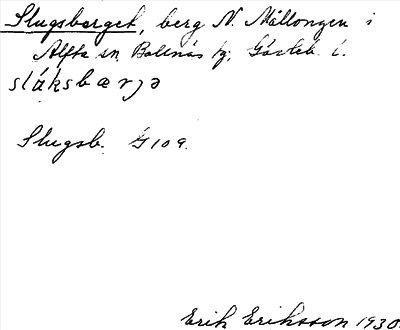 Slugsberget, berg N. Mållongen i
Alfta sn Bollnäs tg, Gävleb. l.
sláksbærjə
Slugsb. G109.
Erik Eriksson 1930.